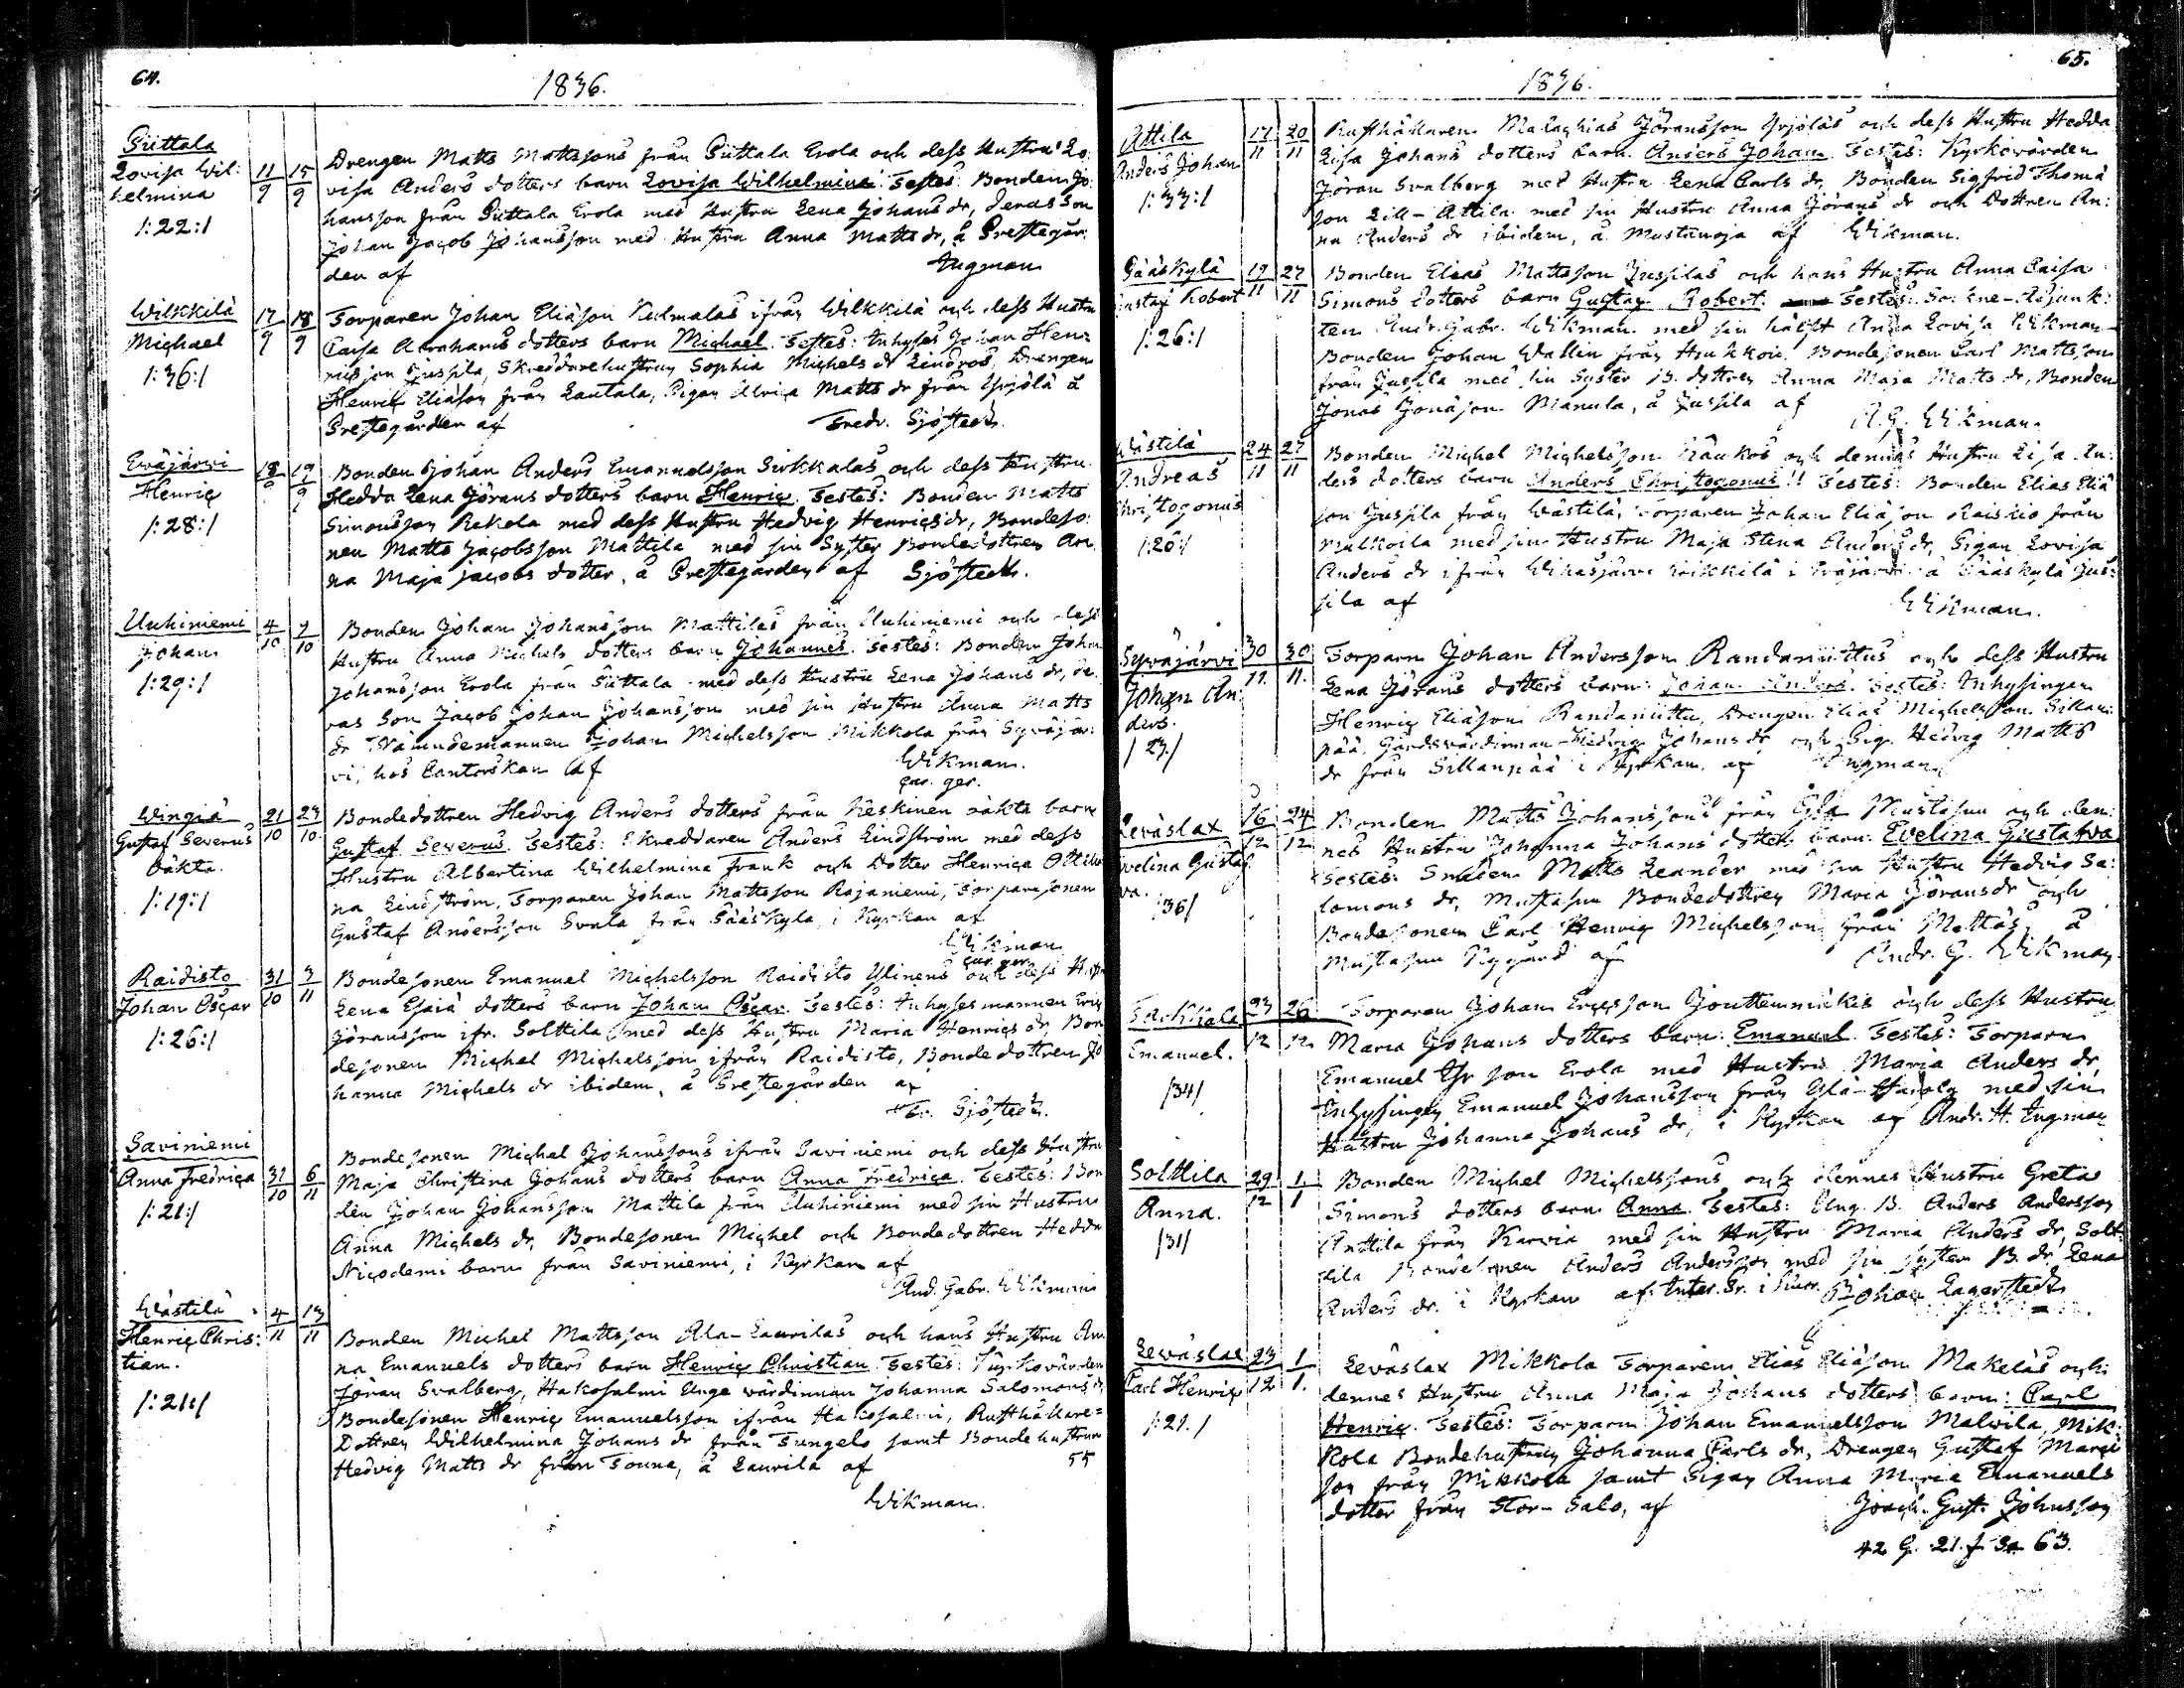 64.
1836.
Püttala
Lovisa Wil:
helmina
1:22:1
11 15
9 9
Drengen Matts Mattssons från Püttala Erola och dess Hustru Lo:
visa Anders dotters barn Lovisa Wilhelmina. Testes: Bonden Jo:
hansson från Püttala Erola med Hustru Lena Johans dr, deras Son
Johan Jacob Johansson med Hustru Anna Matts dr, å Prestegår:
den af Ingman
Wilkkilä
Michael
1:36:1
17 18
9 9
Torparen Johan Eliäson Kulmalas ifrån Wilkkilä och dess Hustru
Caisa Abrahams dotters barn Michael. Testes: Inhyses Johan Hen:
ricsson Jussila, Skreddarehustrun Sophia Michels dr Lindros, Drengen
Henric Eliäson från Lautala, Pigan Ulrica Matts dr från Yrjölä å
Prestegården af Fredr. Sjöstedt.
Eväjärvi
Henric
1:28:1
18 19
9 9
Bonden Johan Anders Emanuelsson Sirkkalas och dess Hustru
Hedda Lena Jörans dotters barn Henric. Testes: Bonden Matts
Simonsson Rekola med dess Hustru Hedvig Henrics dr, Bondeso:
nen Matts Jacobsson Mattila med sin Syster Bondedottren An:
na Maja Jacobs dotter, å Prestegården af Sjöstedt.
Uuhiniemi
Johan
1:29:1
4 7
10 10
Bonden Johan Johansson Mattilas från Uuhiniemi och dess
Hustru Anna Michels dotters barn Johannes. Testes: Bonden Johan
Johansson Erola från Püttala med dess Hustru Lena Johans dr, de:
ras Son Jacob Johan Johansson med sin Hustru Anna Matts
dr Nämndemannen Johan Michelsson Mikkola från Syväjär:
vi, hos Cantorskan af Wikman.
cur. ger.
Wingiä
Gustaf Severus
oäkta.
1:19:1
21 23
10 10
Bondedottren Hedvig Anders dotters från Keskinen oäkta barn
Gustaf Severus. Testes: Skreddaren Anders Lindström med dess
Hustru Albertina Wilhelmina Frank och Dotter Henrica Ottilia
na Lindström, Torparen Johan Mattsson Rajaniemi, Torparesonen
Gustaf Andersson Svula från Pääskylä, i Kyrkan af
Wikman
cur. ger.
Raidisto
Johan Oscar
1:26:1
31 3
10 11
Bondesonen Emanuel Michelsson Raidisto Ylinens och dess Hustru
Lena Esaiä dotters barn Johan Oscar. Testes: Inhysesmannen Eric
Jöransson ifr. Solttila med dess Hustru Maria Henrics dr, Bon
desonen Michel Michelsson ifrån Raidisto, Bondedottren Jo
hanna Michels dr ibidem, å Prestegården af
Fr. Sjöstedt.
Saviniemi
Anna Fredrica
1:21:1
31 6
10 11
Bondesonen Michel Johanssons ifrån Saviniemi och dess Hustru
Maja Christina Johans dotters barn Anna Fredrica. Testes: Bon
den Johan Johansson Mattila från Uuhiniemi med sin Hustru
Anna Michels dr, Bondesonen Michel och Bondedottren Hedda
Nicodemi barn från Saviniemi, i Kyrkan af
And. Gabr. Wikman
Wästilä
Henric Chris:
tian.
1:21:1
4 13
11 11
Bonden Michel Mattsson Ala-Laurilas och hans Hustru An
na Emanuels dotters barn Henric Christian. Testes: Kyrkovärden
Jöran Svalberg, Hakosalmi Unge värdinnan Johanna Salomons dr
Bondesonen Henric Emanuelsson ifrån Hakosalmi, Rusthållare=
Dottren Wilhelmina Johans dr från Tungelo samt Bondehustrun
Hedvig Matts dr från Touna, å Laurila af 55
Wikman.
65.
1836.
Attila
Anders Johan
1:33:1
17 20
11 11
Rusthållaren Malachias Jöransson Yrjöläs och dess Hustru Hedda
Lisa Johans dotters barn Anders Johan. Testes: Kyrkovärden
Jöran Svalberg med Hustru Lena Carls dr, Bonden Sigfrid Thomä
son Lill-Attila med sin Hustru Anna Jörans dr och Dottren An:
na Anders dr ibidem, å Mustanoja af Wikman.
Pääskylä
Gustaf Robert
1:26:1
19 27
11 11
Bonden Elias Mattsson Jussilas och hans Hustru Anna Caisa
Simons dotters barn Gustaf Robert. Testes: Sockne-Adjunk:
ten Andr. Gabr. Wikman med sin hälft Anna Lovisa Wikman
Bonden Johan Wallin från Hukkoi, Bondesonen Carl Mattsson
från Jussila med sin Syster B. dottren Anna Maja Matts dr, Bonden
Jonas Jonäson Mannla, å Jussila af A.G. Wikman.
Wästilä
Andreas
Christogonus
1:26:1
24 27
11 11
Bonden Michel Michelsson Käukös och dennes Hustru Lisa An:
ders dotters barn Anders Christogonus!! Testes: Bonden Elias Eliä
son Jussila från Wästilä, Torparen Johan Eliäson Raiskio från
Mulkoila med sin Hustru Maja Stina Anders dr, Pigan Lovisa
Anders dr ifrån Wihasjärvi Erikkilä i Eväjärvi å Pääskylä Jus:
sila af Wikman.
Syväjärvi
Johan An:
ders.
/23/
30 30
11. 11.
Torparn Johan Andersson Randaniittus och dess Hustru
Lena Jörans dotters barn: Johan Anders. Testes: Inhysingen
Henric Eliäson Randaniittu, Drengen Elias Michelsson Sillan:
pää, Gårdsvärdinnan Hedvig Johans dr och Pig. Hedvig Matts
dr från Sillanpää i Kyrkan af Ingman
Leväslax
Evelina Gustaf
va.
/36/
16 24
12 12
Bonden Matts Johanssons från Mustasun och den:
nes Hustru Johanna Johans dotters barn: Evelina Gustafva
Testes: Smeden Matts Leander med sin Hustru Hedvig Sa:
lomons dr, Mustasun Bondedottren Maria Jörans dr och
Bondesonen Carl Henric Michelsson från Mattas, å
Mustasun Nygård af Andr. G. Wikman
Sackkala
Emanuel.
/34/
23 26
12 12
Torparen Johan Ericsson Jouttenmäkis och dess Hustru
Maria Johans dotters barn: Emanuel. Testes: Torparn
Emanuel son Erola med Hustru Maria Anders dr,
Inhysingen Emanuel Johansson från Ylä-Harola med sin
Hustru Johanna Johans dr, i Kyrkan af Andr. H. Ingman
Solttila
Anna.
/31/
29 1
12 1
Bonden Michel Michelssons och dennes Hustru Greta
Simons dotters barn Anna. Testes: Ung. B. Anders Andersson
Anttila från Karvia med sin Hustru Maria Anders dr, Solt
tila Bondesonen Anders Andersson med sin syster B. dr Lena
Anders dr. i Kyrkan af Johan Lagerstedt
Leväslax
Carl Henric
1:21./
23 1
12 1.
Leväslax Mikkola Torparen Elias Eliäson Makeläs och
dennes Hustru Anna Maja Johans dotters barn: Carl
Henric. Testes: Torparn Johan Emanuelsson Malvila, Mik:
kola Bondehustrun Johanna Carls dr, Drengen Gustaf Marci
son från Mikkola samt Pigan Anna Maria Emanuels
dotter från Stor-Salo, af Joach. Gust. Johnsson
42 G. 21. f Sa 63.